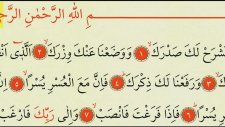 مِ اللّٰهِ الرَّحْمٰنِ الرَّحِ
نَشْرَحْ لَكَ صَدْرَكَۙ ﴿١﴾ وَوَضَعْنَا عَنْكَ وِزْرَكَۙ ﴿٢﴾ اَلَّذ۪ٓي اَنْقَ
كَۙ ﴿٣﴾ وَرَفَعْنَا لَكَ ذِكْرَكَۜ ﴿٤﴾ فَاِنَّ مَعَ الْعُسْرِ يُسْرًاۙ ﴿٥﴾ ا
رِ يُسْرًاۜ ﴿٦﴾ فَاِذَا فَرَغْتَ فَانْصَبْۙ ﴿٧﴾ وَاِلٰى رَبِّكَ فَارْغَبْ